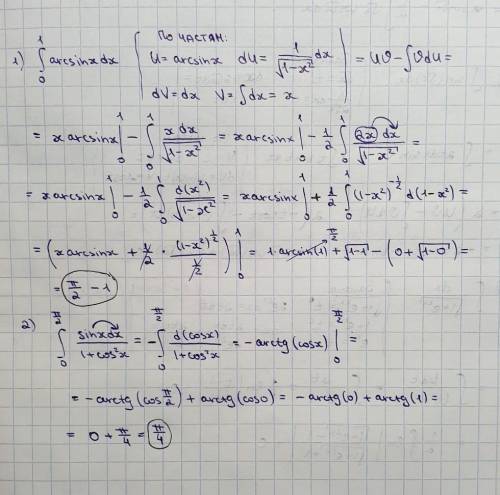 По частям:
1) ∫₀¹ arcsinx dx | U = arcsinx dU = 1/√(1-x²) dx | = UV - ∫VdU =
dV = dx V = ∫dx = x
= x arcsinx |₀¹ - ∫₀¹ x dx/√(1-x²) = x arcsinx |₀¹ - 1/2 ∫₀¹ 2x dx/√(1-x²) =
= x arcsinx |₀¹ - 1/2 ∫₀¹ d(x²)/√(1-x²) = x arcsinx |₀¹ + 1/2 ∫₀¹ (1-x²)^(-1/2) d(1-x²) =
= (x arcsinx + 1/2 · (1-x²)^(1/2)/(1/2)) |₀¹ = 1·arcsin(1) π/2 + √(1-1) - (0 + √(1-0)) =
= π/2 - 1
2) ∫₀^(π/2) sinx dx/(1+cos²x) = -∫₀^(π/2) d(cosx)/(1+cos²x) = -arctg(cosx) |₀^(π/2) =
= -arctg(cos π/2) + arctg(cos0) = -arctg(0) + arctg(1) =
= 0 + π/4 = π/4